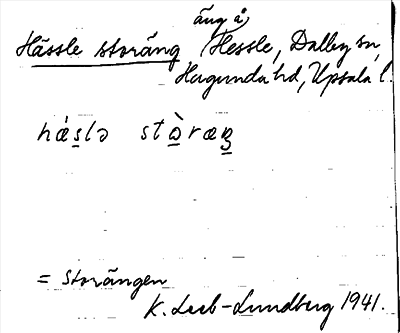 äng å,
Hässle storäng (Hessle, Dalby sn,
Hagunda hd, Uppsala l.
hǽslə stɔ̀ræŋ
= Storängen
K. Leeb-Lundberg 1941.